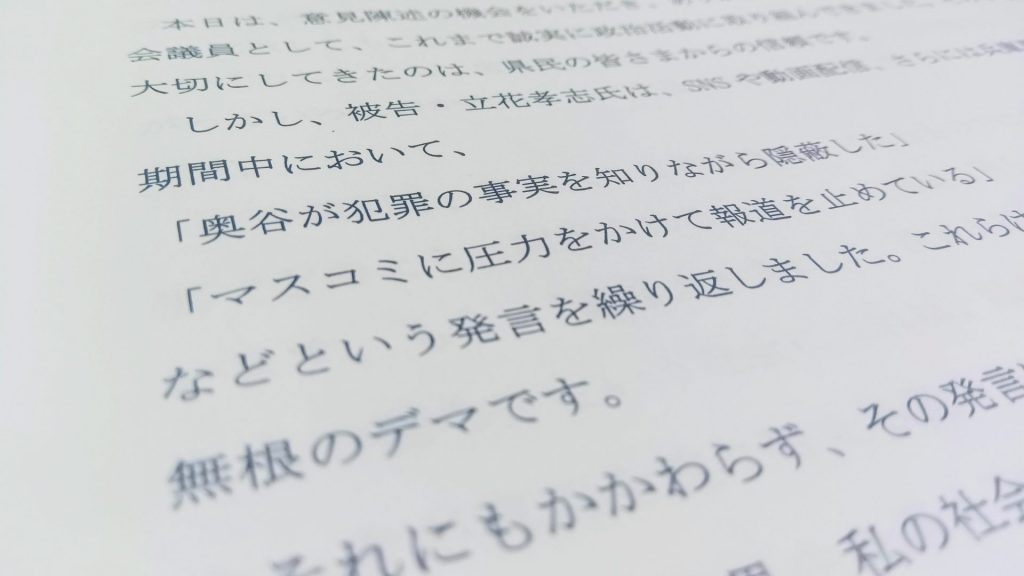 本日は、意見陳述の機会をいただき、あり
会議員として、これまで誠実に政治活動に取り組んできました。
大切にしてきたのは、県民の皆さまからの信頼です。
しかし、被告・立花孝志氏は、SNSや動画配信、さらには兵庫
期間中において、
「奥谷が犯罪の事実を知りながら隠蔽した」
「マスコミに圧力をかけて報道を止めている」
などという発言を繰り返しました。これらは
無根のデマです。
それにもかかわらず、その発言
私の社会